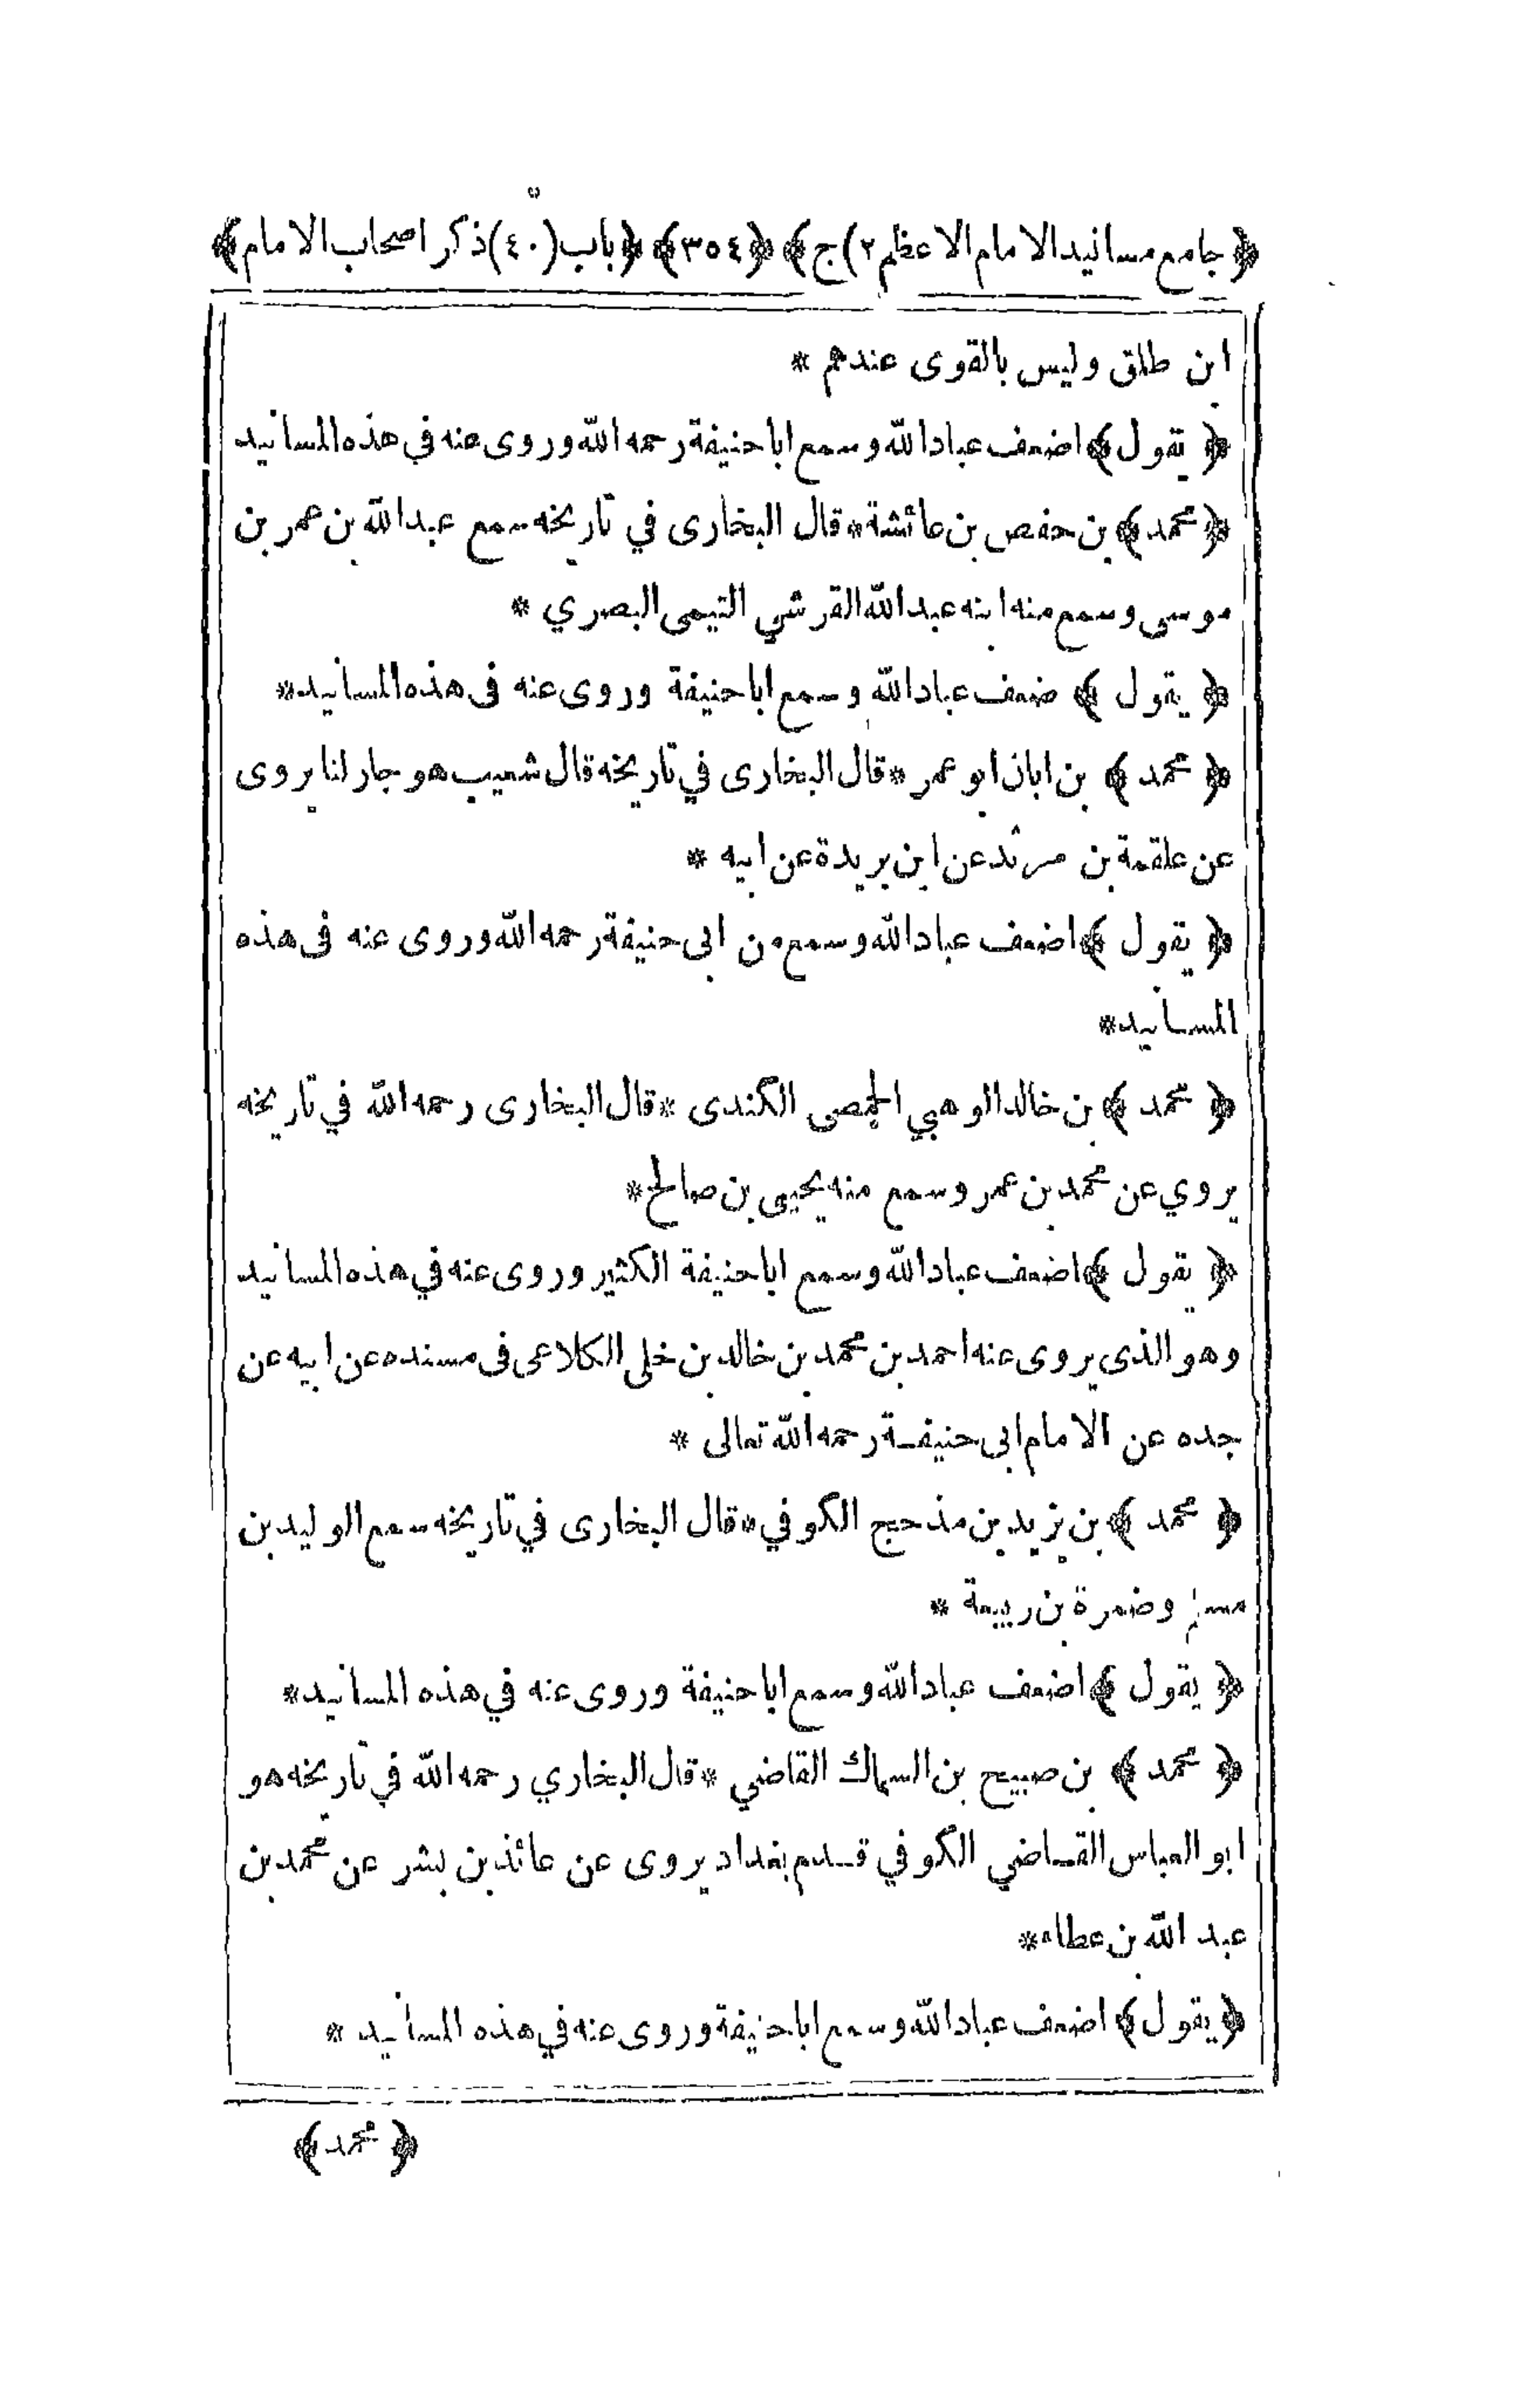 ﴿ جامع مسانيد الامام الاعظم ٢) ج ﴾ ﴿ ٣٥٤ ﴾ ﴿ باب (٤٠) ذكر اصحاب الامام ﴾
ابن طلق وليس بالقوى عندهم *
﴿ يقول ﴾ اضعف عباد الله وسمع ابا حنيفة رحمه الله وروى عنه في هذه المسانيد
﴿ محمد ﴾ بن حفص بن عائشة * قال البخارى في تاريخه سمع عبد الله بن عمر بن
موسى وسمع منه ابنه عبد الله القرشي التيمى البصري *
﴿ يقول ﴾ ضعف عباد الله وسمع ابا حنيفة وروى عنه فى هذه المسانيد *
﴿ محمد ﴾ بن ابان ابو عمر * قال البخارى في تاريخه قال شعيب هو جار لنا يروى
عن علقمة بن مرثد عن ابن بريدة عن ابيه *
﴿ يقول ﴾ اضعف عباد الله وسمع من ابى حنيفة رحمه الله وروى عنه فى هذه
المسانيد *
﴿ محمد ﴾ بن خالد الوهبي الحمصى الكندى * قال البخارى رحمه الله في تاريخه
يروي عن محمد بن عمر وسمع منه يحيى بن صالح *
﴿ يقول ﴾ اضعف عباد الله وسمع ابا حنيفة الكثير وروى عنه في هذه المسانيد
وهو الذى يروى عنه احمد بن محمد بن خالد بن خلى الكلاعى فى مسنده عن ابيه عن
جده عن الامام ابى حنيفة رحمه الله تعالى *
﴿ محمد ﴾ بن يزيد بن مذحج الكوفي * قال البخارى في تاريخه سمع الوليد بن
مسلم وضمرة بن ربيعة *
﴿ يقول ﴾ اضعف عباد الله وسمع ابا حنيفة وروى عنه في هذه المسانيد *
﴿ محمد ﴾ بن صبيح بن السماك القاضي * قال البخاري رحمه الله في تاريخه هو
ابو العباس القاضي الكوفي قدم بغداد يروى عن عائذ بن بشر عن محمد بن
عبد الله بن عطاء *
﴿ يقول ﴾ اضعف عباد الله وسمع ابا حنيفة وروى عنه في هذه المسانيد *
﴿ محمد ﴾